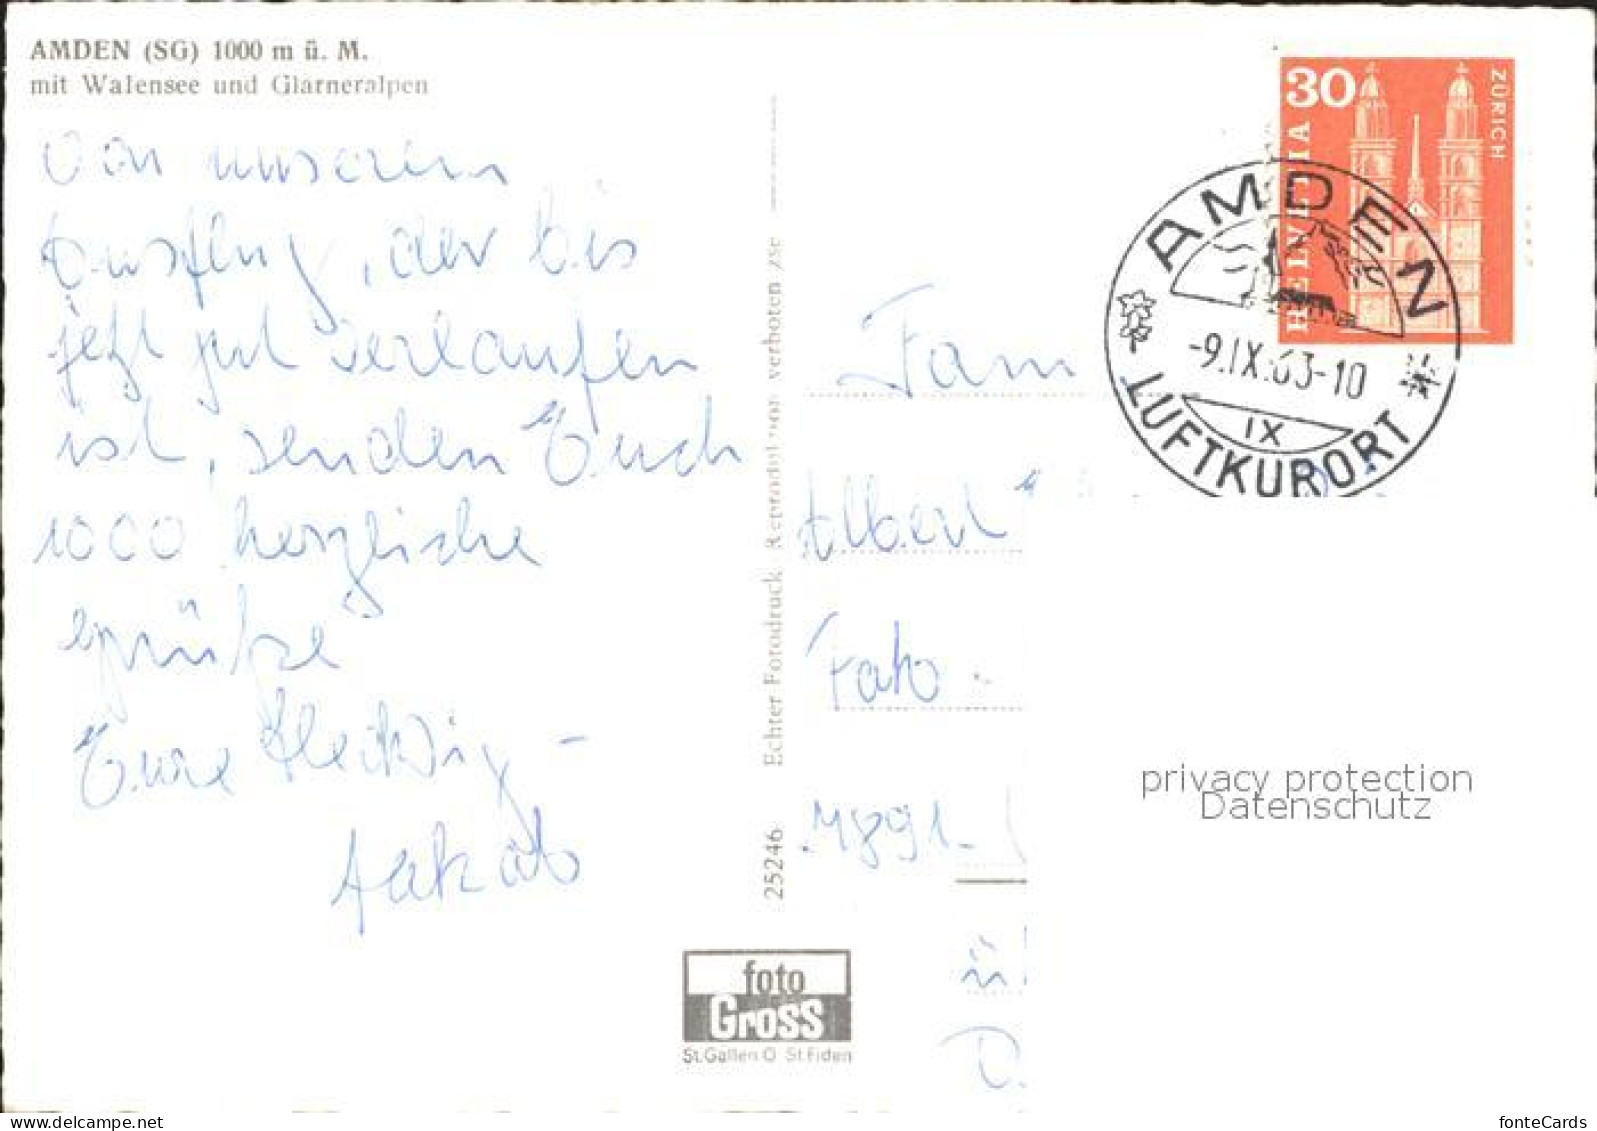 AMDEN (SG) 1000 m ü. M.
mit Walensee und Glarneralpen
Von unserem
Ausflug, der bis
jetzt gut verlaufen
ist, senden Euch
1000 herzliche
grüße
Eure Hedwig -
Jakob
25246 Echter Fotodruck Reproduktion verboten
foto
Gross
St.Gallen O St.Fiden
30
HELVETIA
ZÜRICH
AMDEN
-9.IX.63-10
IX
LUFTKURORT
Fam
Albert
Foto
7891
privacy protection
Datenschutz
fonteCards